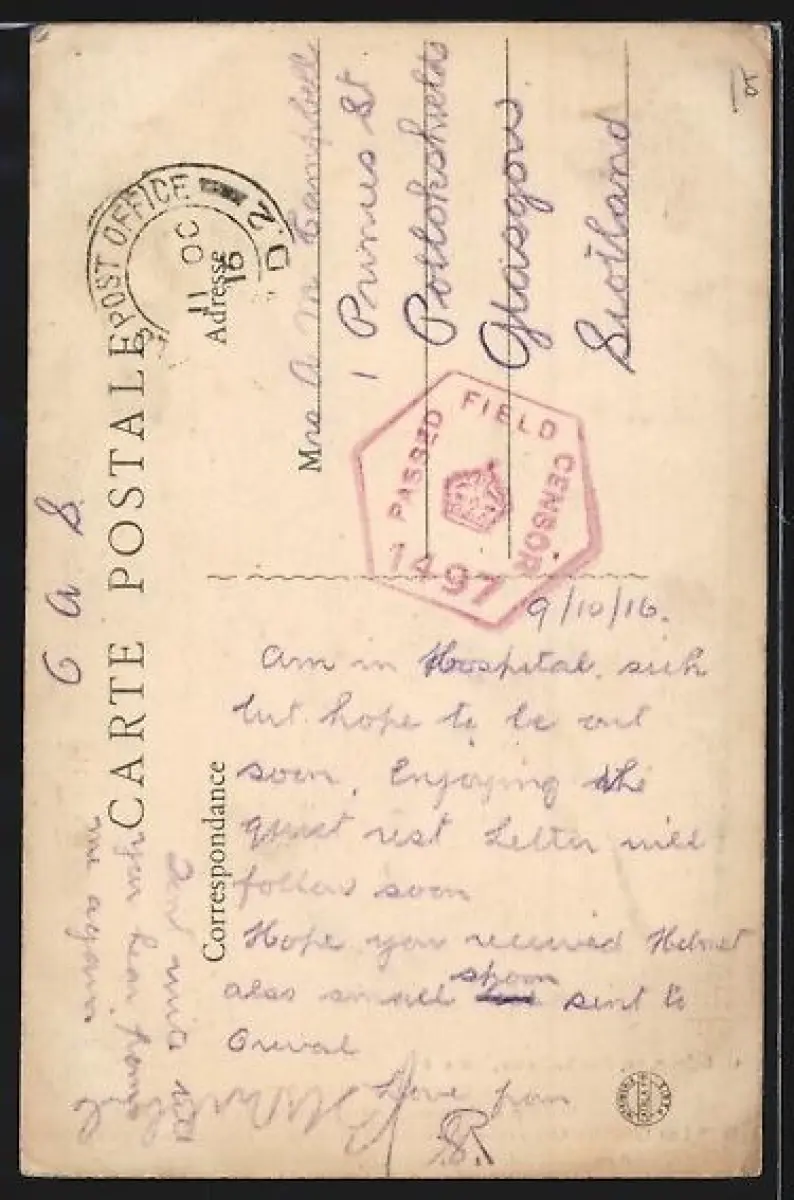 CARTE POSTALE
POST OFFICE
D.2
OC
11
16
Adresse
Mrs A M Campbell
1 Princes St
Pollokshields
Glasgow
Scotland
PASSED FIELD CENSOR
1497
O A S
Correspondance
9/10/16.
Am in Hospital, sick
but hope to be out
soon. Enjoying the
quiet rest Letter will
follow soon
Hope you received Helmet
also small spoon sent to
Love from
Dont write till
you hear from
me again